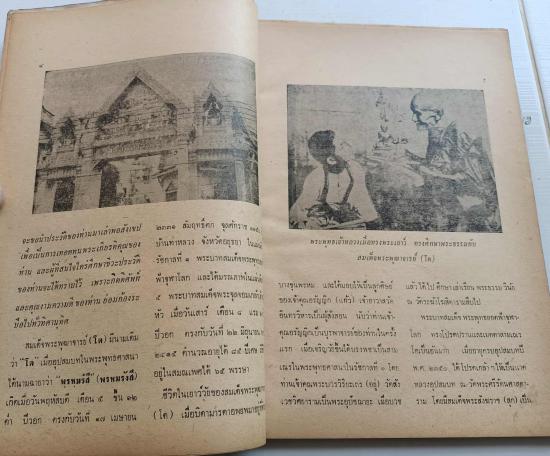 จะขอนำประวัติของท่านมาเล่าพอสังเขป
เพื่อเป็นการเทอดทูนพระเกียรติคุณของ
ท่าน และผู้ที่สนใจใคร่ศึกษาชีวะประวัติ
ของท่านจะได้ทราบไว้ เพราะกิตติศัพท์
และคุณงามความดี ของท่าน ย่อมก้อง
ไปทั่วทิศานุทิศ
สมเด็จพระพุฒาจารย์ (โต) มีนามเดิม
ว่า "โต" เมื่ออุปสมบทในพระพุทธศาสนา
ได้นามฉายาว่า "พฺรหฺมรํสี" (พรหมรังสี)
เกิดเมื่อวันพฤหัสบดี เดือน ๕ ขึ้น ๑๒
ค่ำ ปีวอก ตรงกับวันที่ ๑๗ เมษายน
๒๓๓๑ สัมฤทธิ์ศก จุลศักราช
บ้านท่าหลวง จังหวัดอยุธยา ในแผ่น
รัชกาลที่ ๑ พระบาทสมเด็จพระพุทธ
ฟ้าจุฬาโลก และได้มรณภาพใน
๕ พระบาทสมเด็จพระจุลจอมเกล้า
หัว เมื่อวันเสาร์ เดือน ๘ แรม
ปีวอก ตรงกับวันที่ ๒๒ มิถุนายน
๒๔๑๕ คำนวณอายุได้ ๘๕ ปี
อยู่ในสมณเพศได้ ๖๕ พรรษา
ชีวิตในเยาว์วัยของสมเด็จพระพุฒา
(โต) เมื่อบิดามารดา
พระพุทธเจ้าหลวงเมื่อทรงพระเยาว์ ทรงศึกษาพระธรรมกับ
สมเด็จพระพุฒาจารย์ (โต)
บางขุนพรหม และได้มอบให้เป็นลูกศิษย์
ของเจ้าคุณอรัญญิก (แก้ว) เจ้าอาวาสวัด
อินทรวิหารเป็นผู้สั่งสอน นับว่าท่านเจ้า
คุณอรัญญิกเป็นบูรพาจารย์ของท่านในครั้ง
แรก เมื่อเจริญวัยขึ้นได้บรรพชาเป็นสาม
เณรในพระพุทธศาสนาในรัชกาลที่ ๑ โดย
ท่านเจ้าคุณพระบวรวิริยเถร (อยู่) วัดสัง
เวชวิศยารามเป็นพระอุปัชฌายะ เมื่อบวช
แล้วได้ไป ศึกษาเล่าเรียน พระธรรมวินัย
วัดระฆังโฆสิตารามสืบไป
พระบาทสมเด็จ พระพุทธยอดฟ้าจุฬา
โลก ทรงโปรดปรานและเมตตาสามเณร
โตเป็นอันมาก เมื่ออายุครบอุปสมบทปี
พ.ศ. ๒๓๕๐ ได้โปรดเกล้าฯ ให้เป็นนาค
หลวงอุปสมบท ณ วัดพระศรีรัตนศาสดา
ราม โดยมีสมเด็จพระสังฆราช (สุก) เป็น